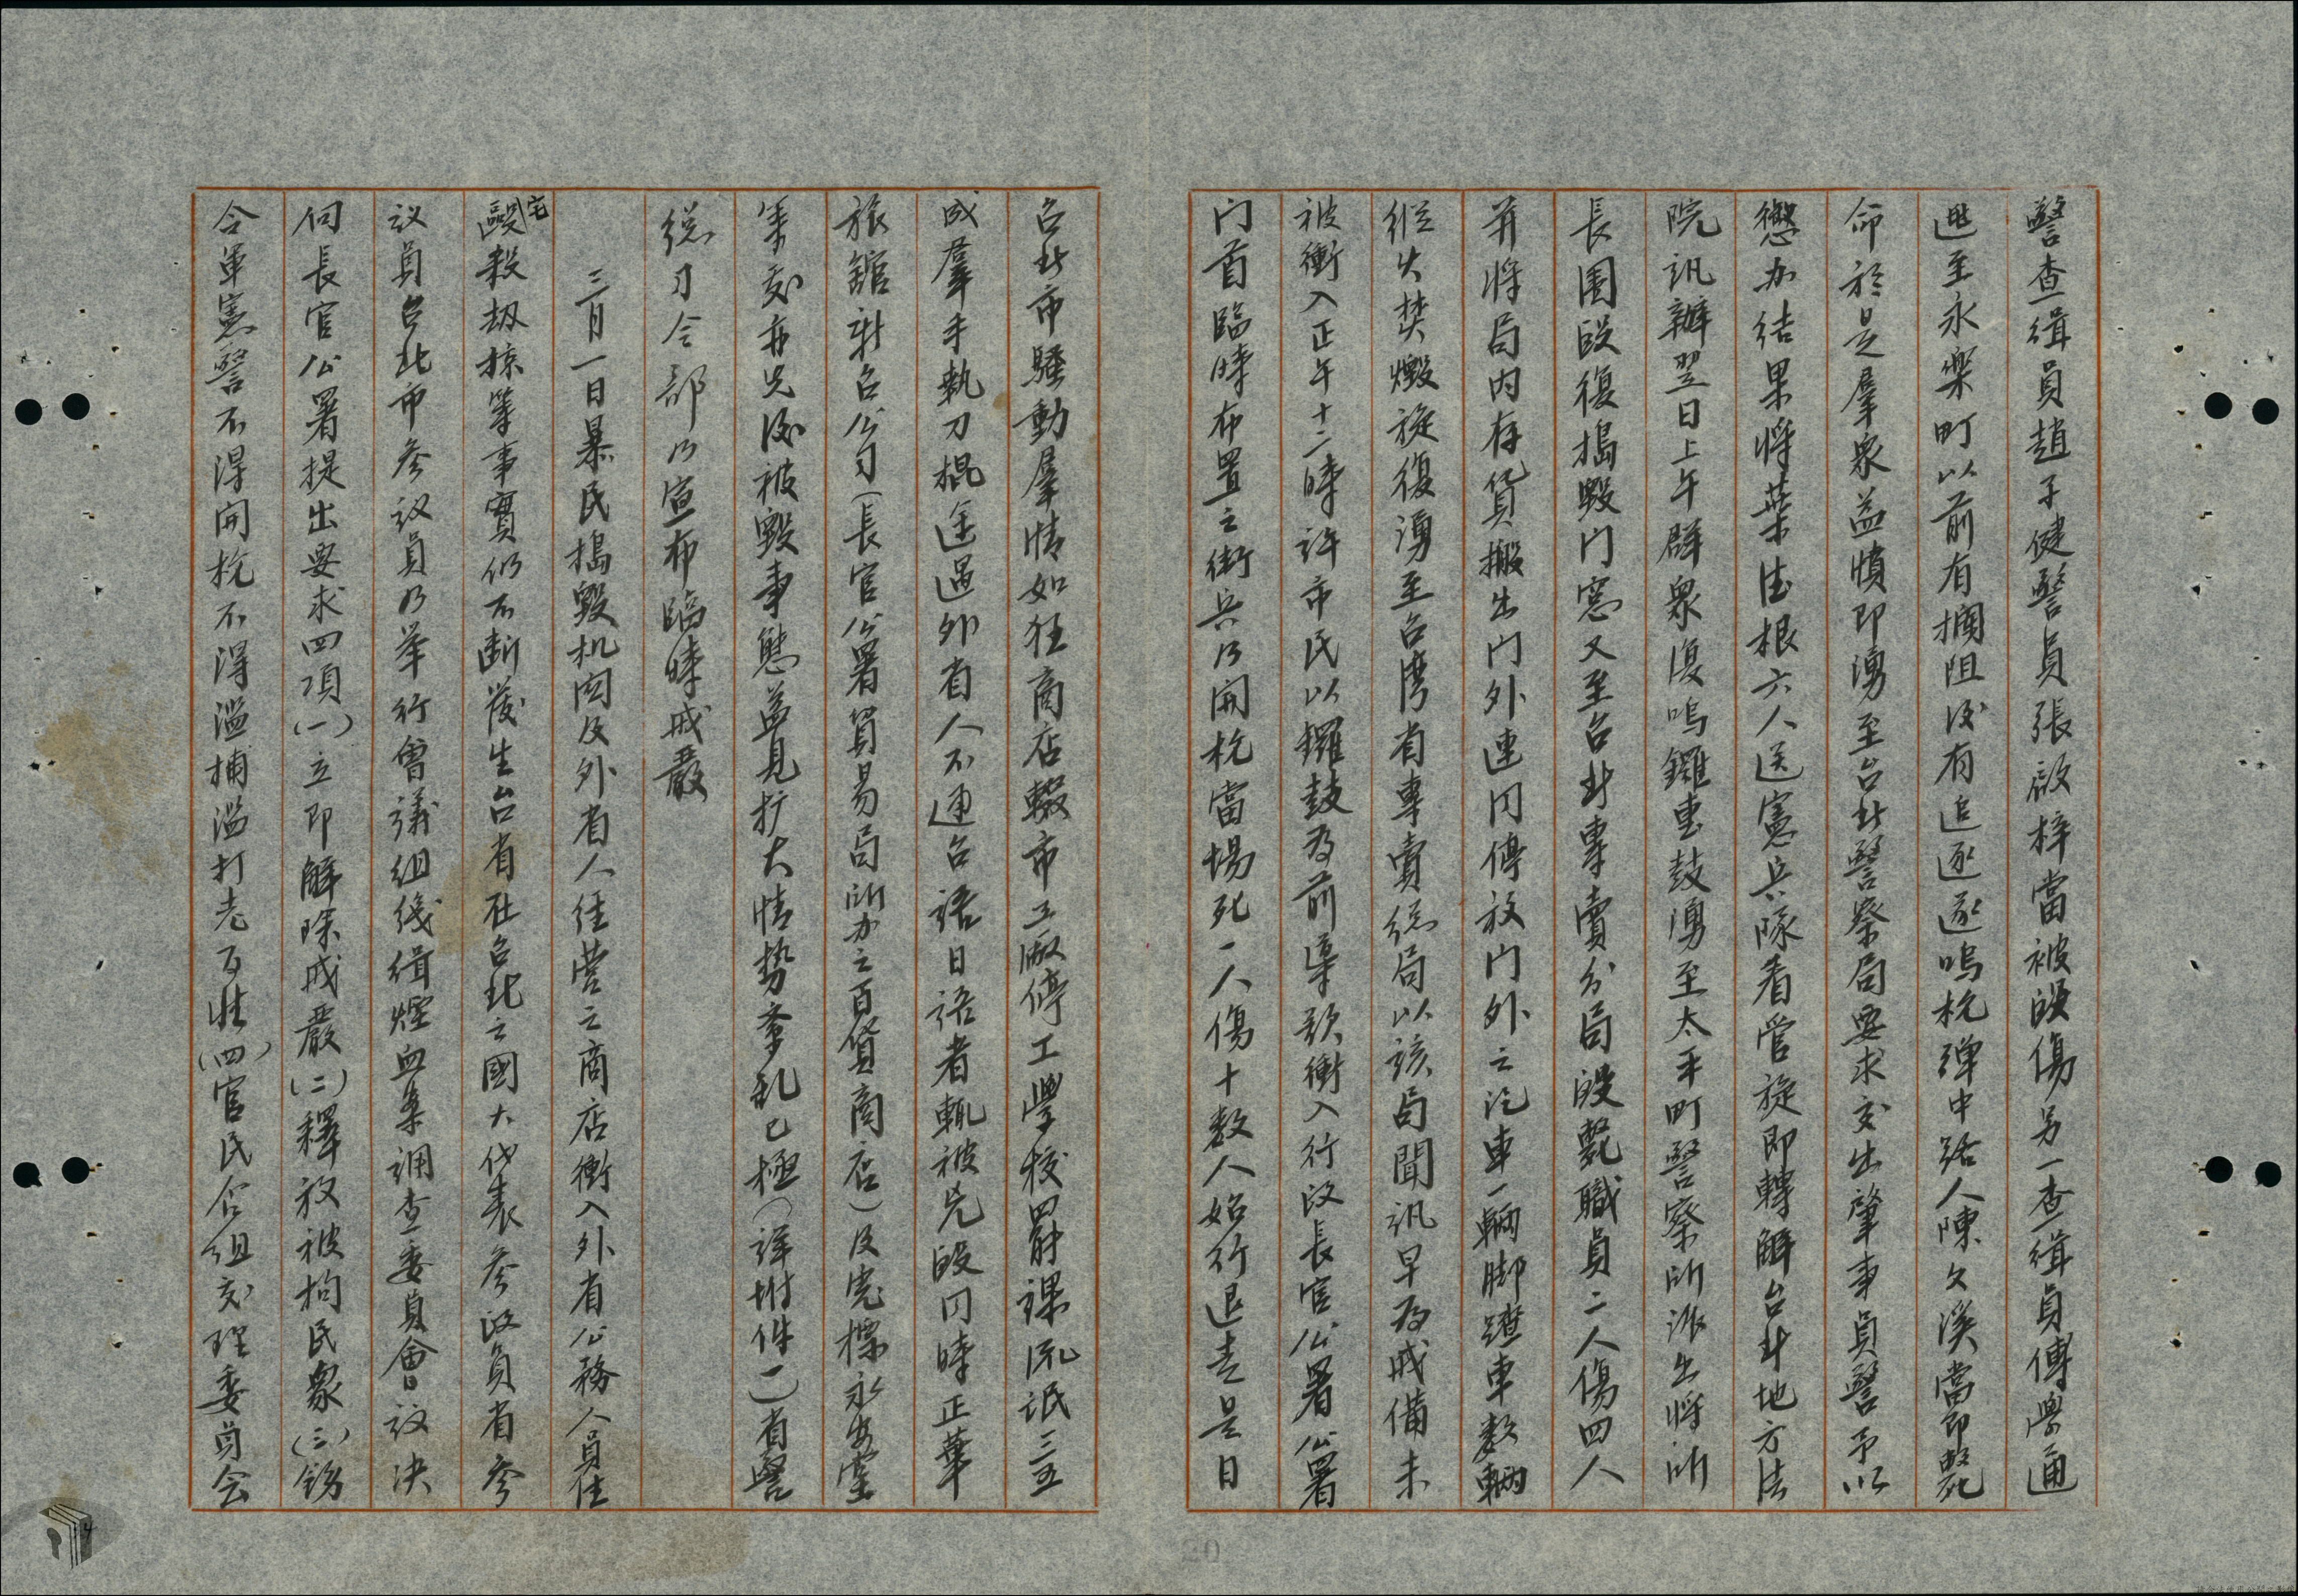 警查緝員趙子健警員張啟梓當被毆傷另一查緝員傅學通
逃至永樂町以前有攔阻後有追逐遂鳴枪弹中路人陳文溪當即斃
命於是羣眾益憤即湧至台北警察局要求交出肇事員警予以
懲办结果将葉德根六人送憲兵隊看管旋即轉解台北地方法
院訊辦翌日上午群眾復鳴鑼击鼓湧至太平町警察所派出將所
長围毆復搗毀门窓又至台北專賣分局毆斃職員二人傷四人
并将局内存貨搬出门外連同停放门外之汽車一輛脚蹬車数輛
纵火焚燬旋復湧至台湾省專賣总局以该局聞訊早为戒備未
被衝入正午十二時許市民以鑼鼓为前導欲衝入行政長官公署公署
门首臨時布置之衛兵乃開枪當場死一人傷十数人始行退去是日
台北市騷動羣情如狂商店輟市工廠停工學校罷課流氓三五
成羣手執刀棍途遇外省人不通台語日語者輒被兇毆同時正華
旅舘新台公司（長官公署貿易局所办之百貨商店）及虎標永安堂
等亦先後被毀事態益見扩大情势紊乱已極（詳附件一）省警
总司令部乃宣布臨時戒嚴
三月一日暴民搗毀机関及外省人经营之商店衝入外省公務人員住
宅毆殺劫掠等事實仍不断發生台省在台北之國大代表参政員省参
议員台北市参议員乃举行會議组織緝煙血案调查委員會议决
向長官公署提出要求四項（一）立即解除戒嚴（二）釋放被拘民眾（三）飭
令軍憲警不得開枪不得濫捕濫打老百姓（四）官民合组处理委員会